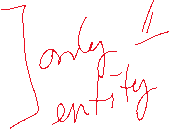 only
entity